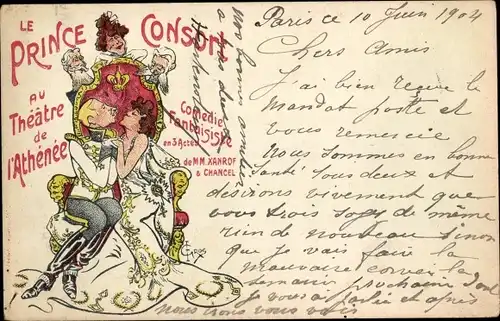 LE PRINCE CONSORT
AU
Théâtre
de
l'Athénée
Comédie
Fantaisiste
en 3 Actes
de MM. XANROF
& CHANCEL
Paris ce 10 Juin 1904
Chers Amis
J'ai bien reçue le
Mandat poste et
vous remercie
Nous sommes en bonne
santé tous deux et
désirons vivement que
vous trois soyez de même
rien de nouveau sinon
que je vais faire la
mauvaise corvée la
semaine prochaine dont
je vous ai parlée et après
nous irons vous voir
Nos bonnes amitiés
a tous deux